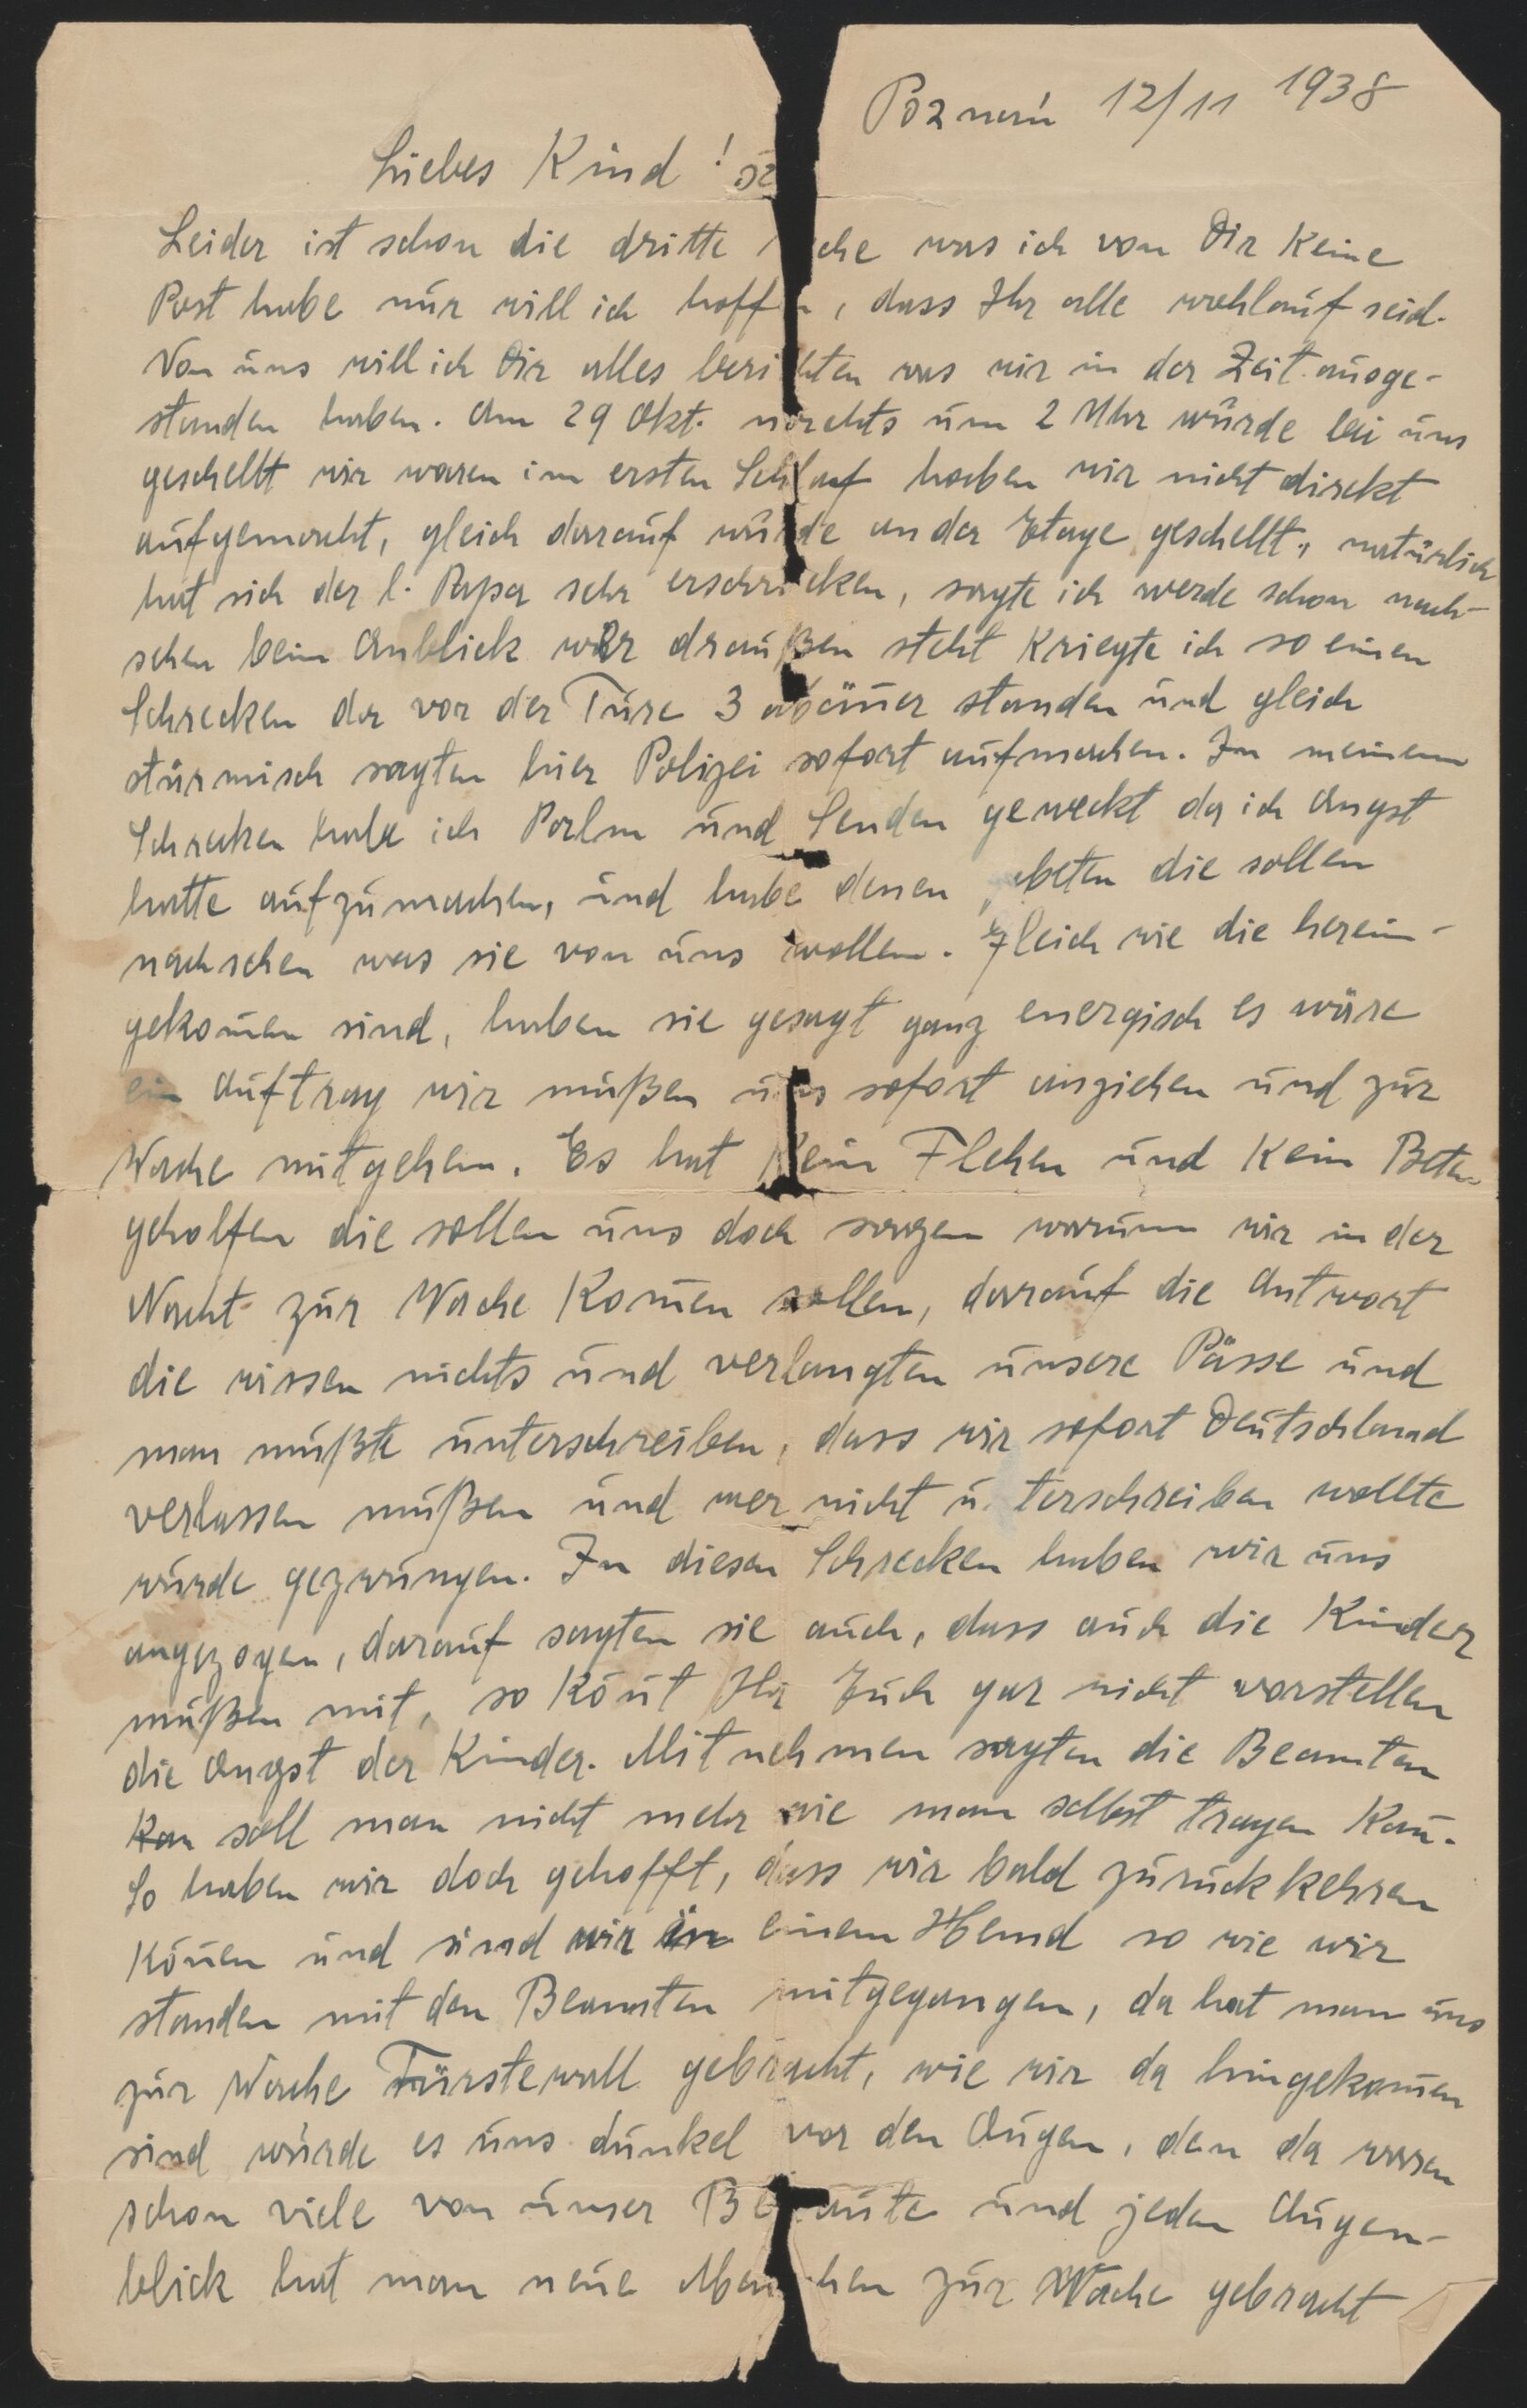 Poznań 12/11 1938
Liebes Kind!
Leider ist schon die dritte che was ich von Dir keine
Post habe nur will ich hoff n, dass Ihr alle wohlauf seid.
Von uns will ich Dir alles berichten was wir in der Zeit ausge-
standen haben. Am 29 Okt. nachts um 2 Uhr wurde bei uns
geschellt wir waren im ersten Schlaf haben wir nicht direkt
aufgemacht, gleich darauf wurde an der Etage geschellt, natürlich
hat sich der l. Papa sehr erschrocken, sagte ich werde schon nach-
sehen beim Anblick wer draußen steht kriegte ich so einen
Schrecken da vor der Türe 3 standen und gleich
stürmisch sagten hier Polizei sofort aufmachen. In meinem
Schrecken habe ich und geweckt da ich Angst
hatte aufzumachen, und habe denen ebeten die sollen
nachsehen was sie von uns wollen. Gleich wie die herein-
gekom̄en sind, haben sie gesagt ganz energisch es wäre
ein Auftrag wir müßen uns sofort anziehen und zur
Wache mitgehen. Es hat kein Flehen und kein Beten
geholfen die sollen uns doch sagen warum wir in der
Nacht zur Wache kom̄en sollen, darauf die Antwort
die wissen nichts und verlangten unsere Pässe und
man mußte unterschreiben, dass wir sofort Deutschland
verlassen müßen und wer nicht u terschreiben wollte
wurde gezwungen. In diesen Schrecken haben wir uns
angezogen, darauf sagten sie auch, dass auch die Kinder
müßen mit, so kön̄t Ihr Euch gar nicht vorstellen
die Angst der Kinder. Mitnehmen sagten die Beamten
kan soll man nicht mehr wie man selbst tragen kan̄.
So haben wir doch gehofft, dass wir bald zurückkehren
kön̄en und sind wir in einem Hemd so wie wir
standen mit den Beamten mitgegangen, da hat man uns
zur Wache Fürstewall gebracht, wie wir da hingekom̄en
sind wurde es uns dunkel vor den Augen, den da waren
schon viele von unser Be an̄te und jeden Augen-
blick hat man neue Men hen zur Wache gebracht